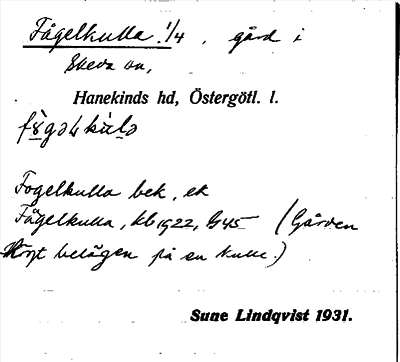 Fågelkulla 1/4, gård i
Skeda sn,
Hanekinds hd, Östergötl. l.
Fogelkulla bek, ek
Fågelkulla, kb 1922, G45 (Gården
högt belägen på en kulle.)
Sune Lindqvist 1931.